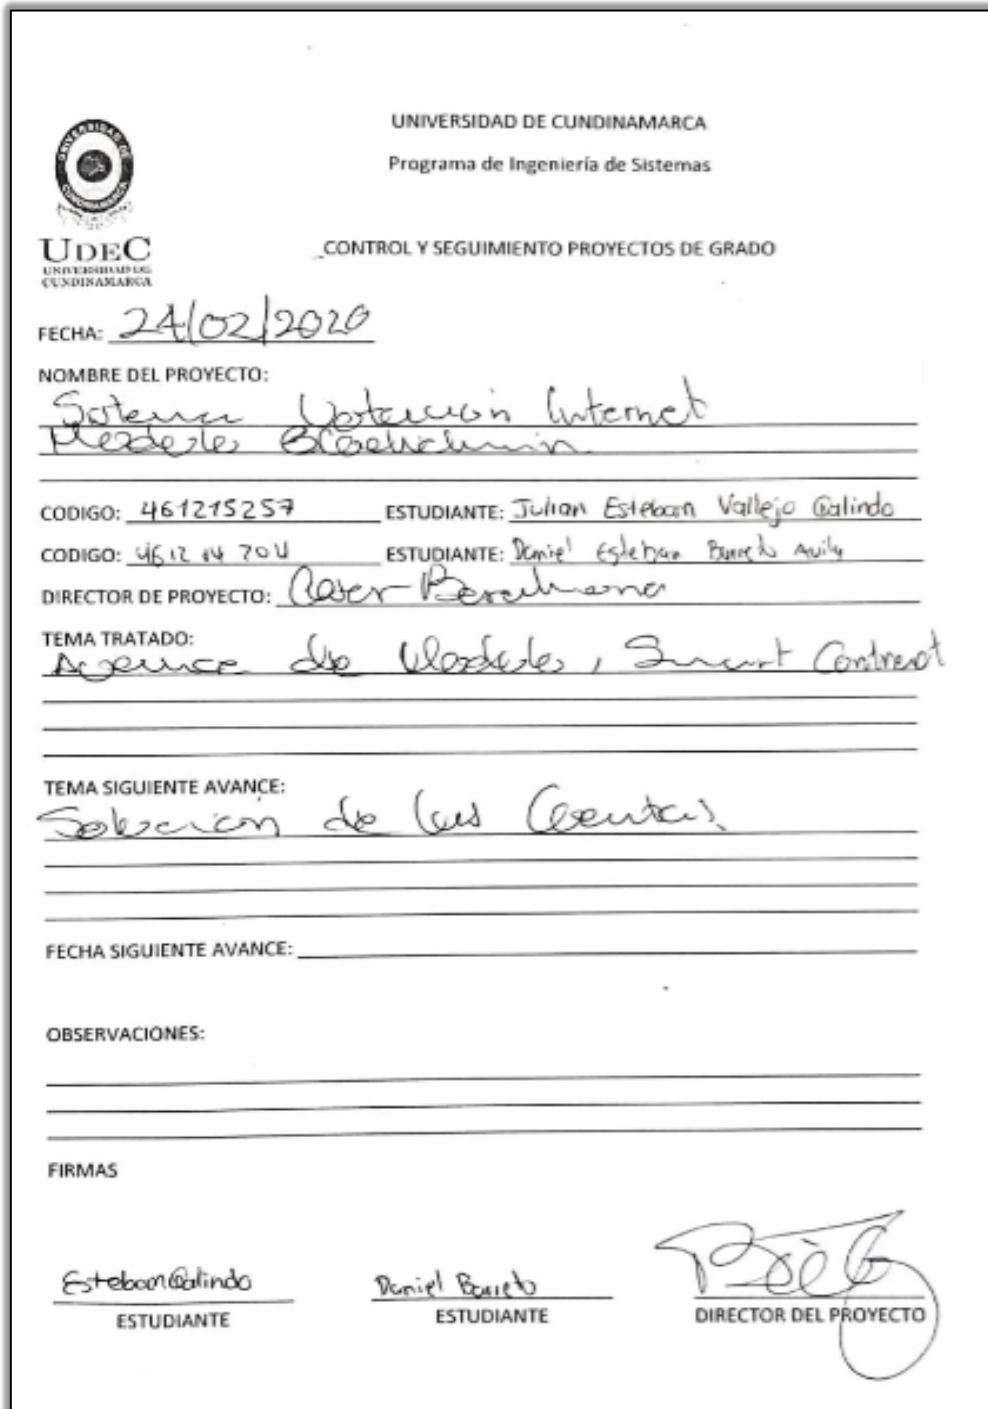 UNIVERSIDAD DE CUNDINAMARCA
Programa de Ingeniería de Sistemas
UDEC
UNIVERSIDAD DE
CUNDINAMARCA
_CONTROL Y SEGUIMIENTO PROYECTOS DE GRADO
FECHA: 24/02/2020
NOMBRE DEL PROYECTO:
Sistema Votación Internet
Modelo Blockchain
CODIGO: 461215257 ESTUDIANTE: Julian Esteban Vallejo Galindo
CODIGO: 461214204 ESTUDIANTE: Daniel Esteban Barreto Avila
DIRECTOR DE PROYECTO: Cesar
TEMA TRATADO:
Avance de Modelo, Smart Contract
TEMA SIGUIENTE AVANCE:
de las
FECHA SIGUIENTE AVANCE:
OBSERVACIONES:
FIRMAS
Esteban Galindo Daniel Barreto
ESTUDIANTE ESTUDIANTE DIRECTOR DEL PROYECTO